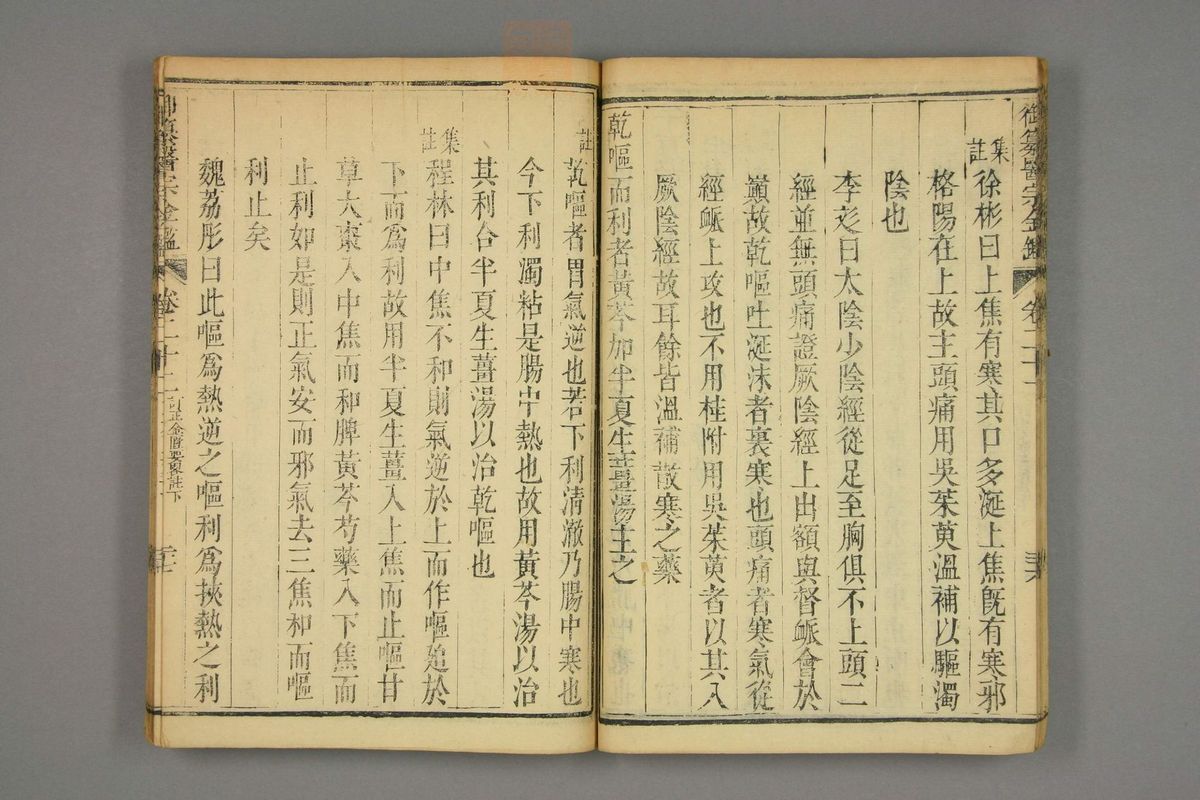 御纂醫宗金鑑 卷二十一 三六
集註徐彬曰上焦有寒其口多涎上焦既有寒邪
格陽在上故主頭痛用吳茱萸溫補以驅濁
陰也
李彣曰太陰少陰經從足至胸俱不上頭二
經並無頭痛證厥陰經上出額與督脈會於
巔故乾嘔吐涎沫者裏寒也頭痛者寒氣從
經脈上攻也不用桂附用吳茱萸者以其入
厥陰經故耳餘皆溫補散寒之藥
乾嘔而利者黃芩加半夏生薑湯主之
註乾嘔者胃氣逆也若下利清澈乃腸中寒也
今下利濁粘是腸中熱也故用黃芩湯以治
其利合半夏生薑湯以治乾嘔也
集註程林曰中焦不和則氣逆於上而作嘔迫於
下而為利故用半夏生薑入上焦而止嘔甘
草大棗入中焦而和脾黃芩芍藥入下焦而
止利如是則正氣安而邪氣去三焦和而嘔
利止矣
魏荔彤曰此嘔為熱逆之嘔利為挾熱之利
御纂醫宗金鑑 卷二十二 訂正金匱要略註下